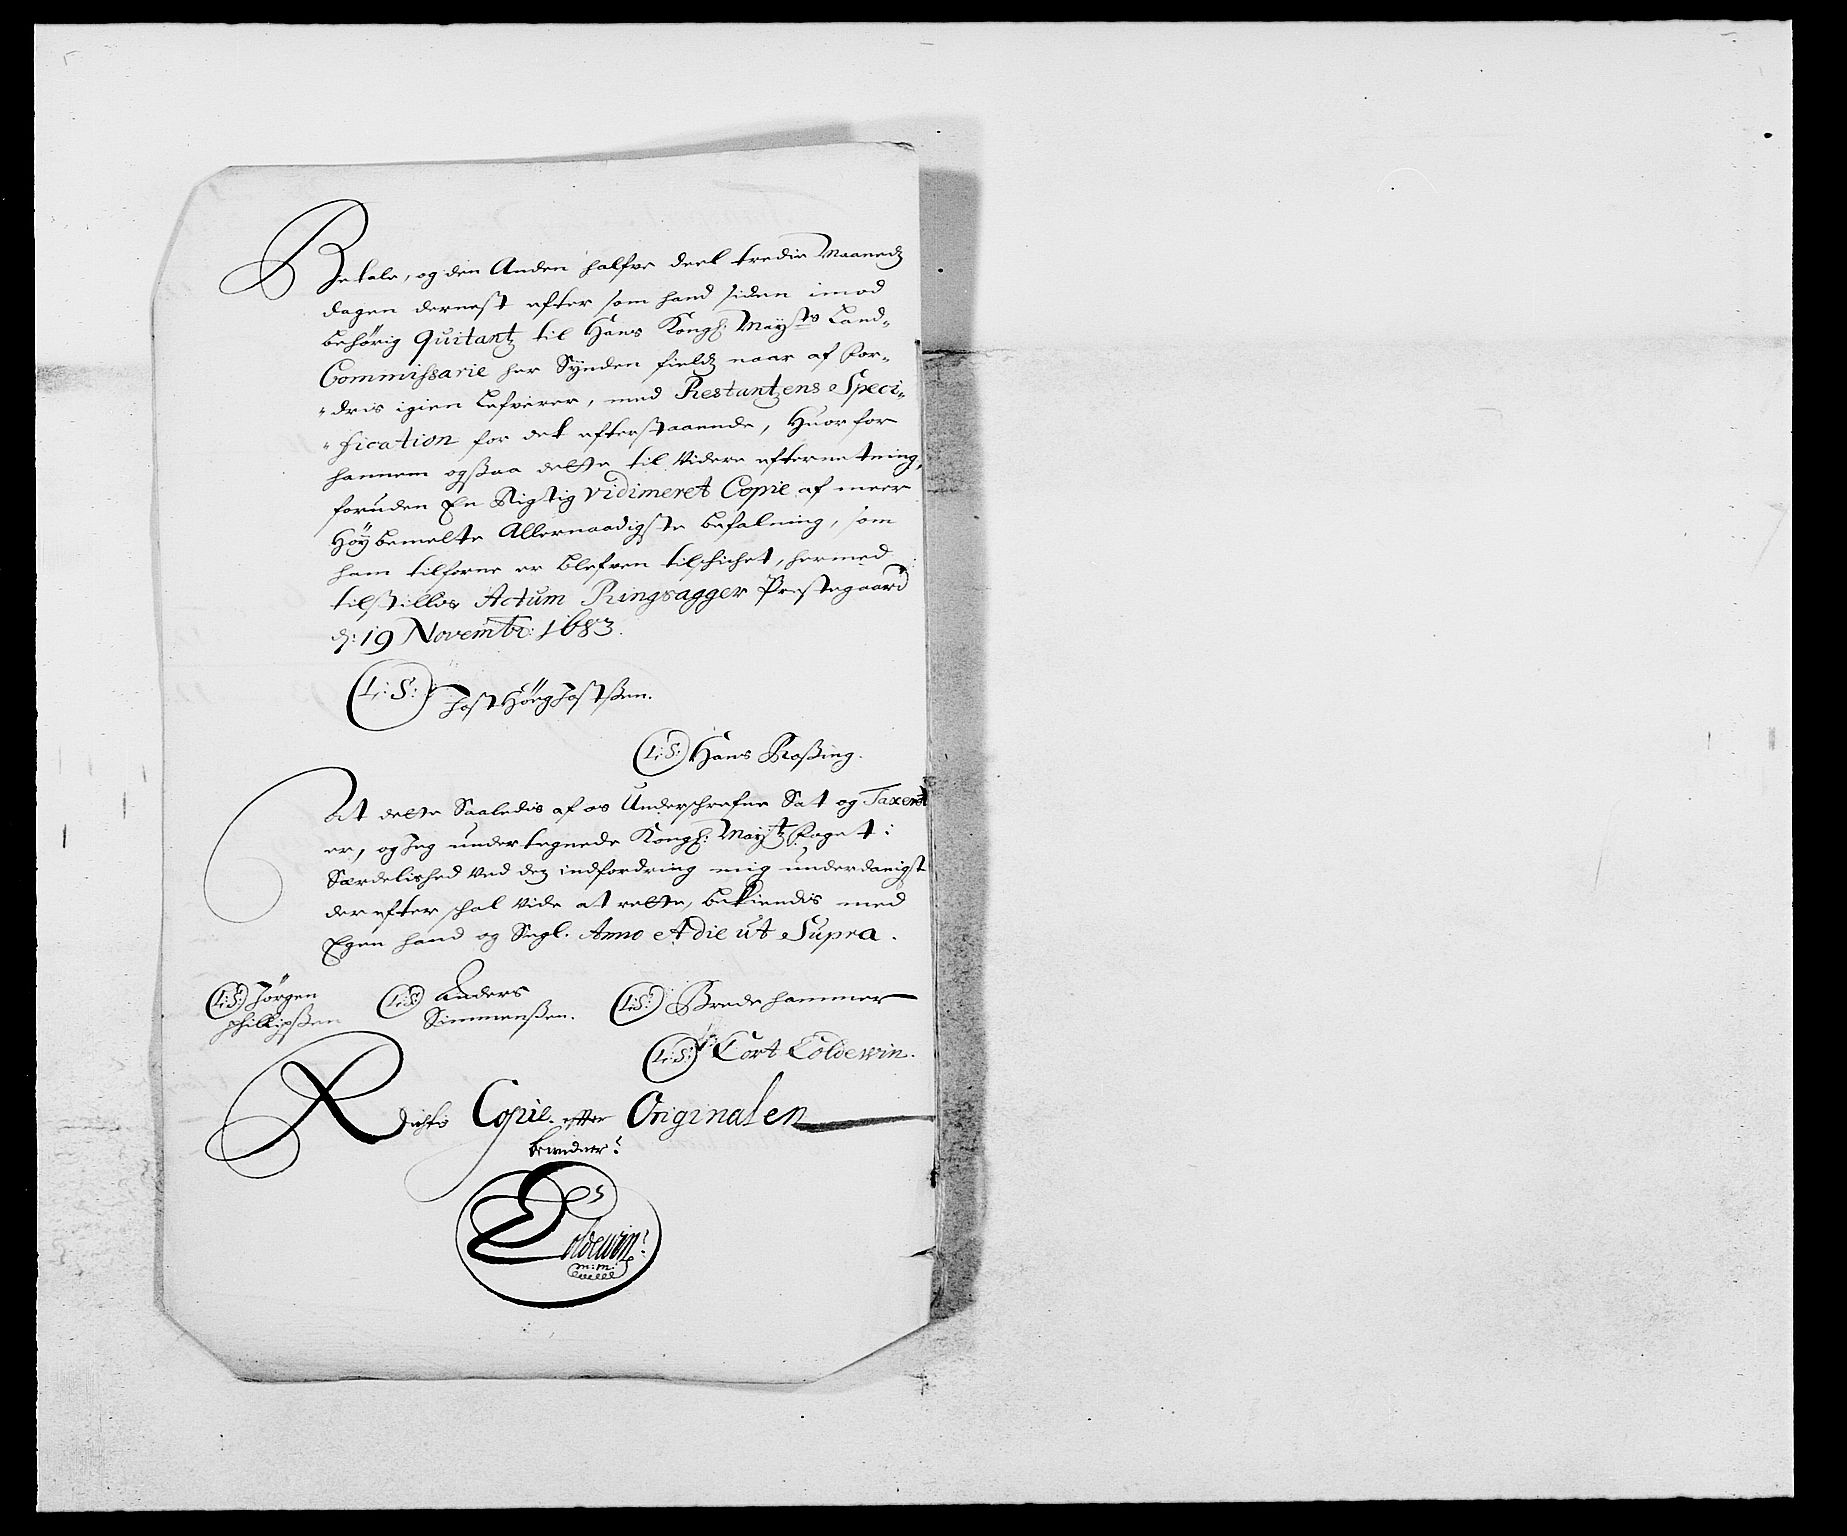 Betale, og den Anden halfve deel tredie Maanedz
dagen dernest efter som hand siden imod
behörig Quitantz til Hans Kongl: Mayts Land-
Commissarie her Synden fieldz naar af for-
-dris igien Lefverer, med Restantzens Speci-
-fication for det efterstaaende, Huorfor
hannem ogsaa dette til Videre efterretning,
foruden En Rigtig Vidimeret Copie af meer
Höybemelte Allernaadigste befalning, som
ham tilforne er blefven tilschichet, hermed
tilstilles Actum Ringsagger Prestegaard
d: 19 Novembr: 1683.
(L:S:) Jost Hörg Jostßen.
(L:S:) Hans Roßing.
At dette Saaledis af os Underschrefne Sat og Taxeret
er, og Jeg undertegnede Kongl: Maytz foget i
Særdelished Ved dez indfordring mig underdanigst
der efter schal Vide at rette, bekiendis med
Egen hand og Segl. Anno et die ut Supra.
(L:S:) Jörgen (L:S:) Anders (L:S:) Brede hammer
Phillipßen Simmenßen.
(L:S:) Cort Coldewin.
Rigtig Copie efter Originalen
bevidner
Coldewin
m:m: